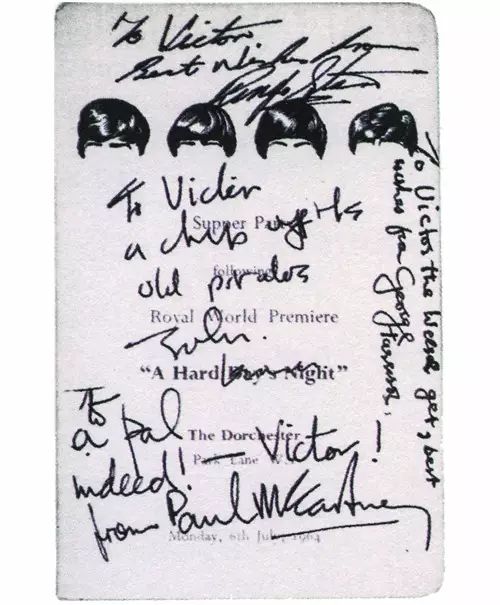 To Victor
Best Wishes from
Ringo Starr
To Victor
a
old
John Lennon
To Victor the get, best
wishes from George Harrison,
Supper Party
following
Royal World Premiere
“A Hard Day's Night”
The Dorchester
Park Lane
Monday, 6th July, 1964
To
a pal
indeed! — Victor!
from Paul McCartney